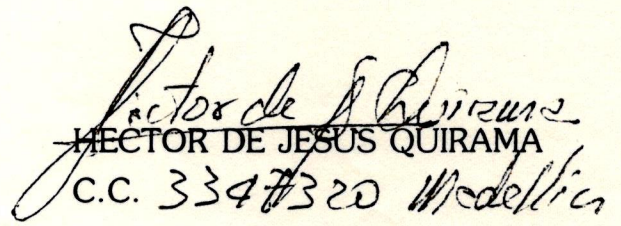 Hector de J Quirama
HECTOR DE JESUS QUIRAMA
C.C. 3347320 Medellin